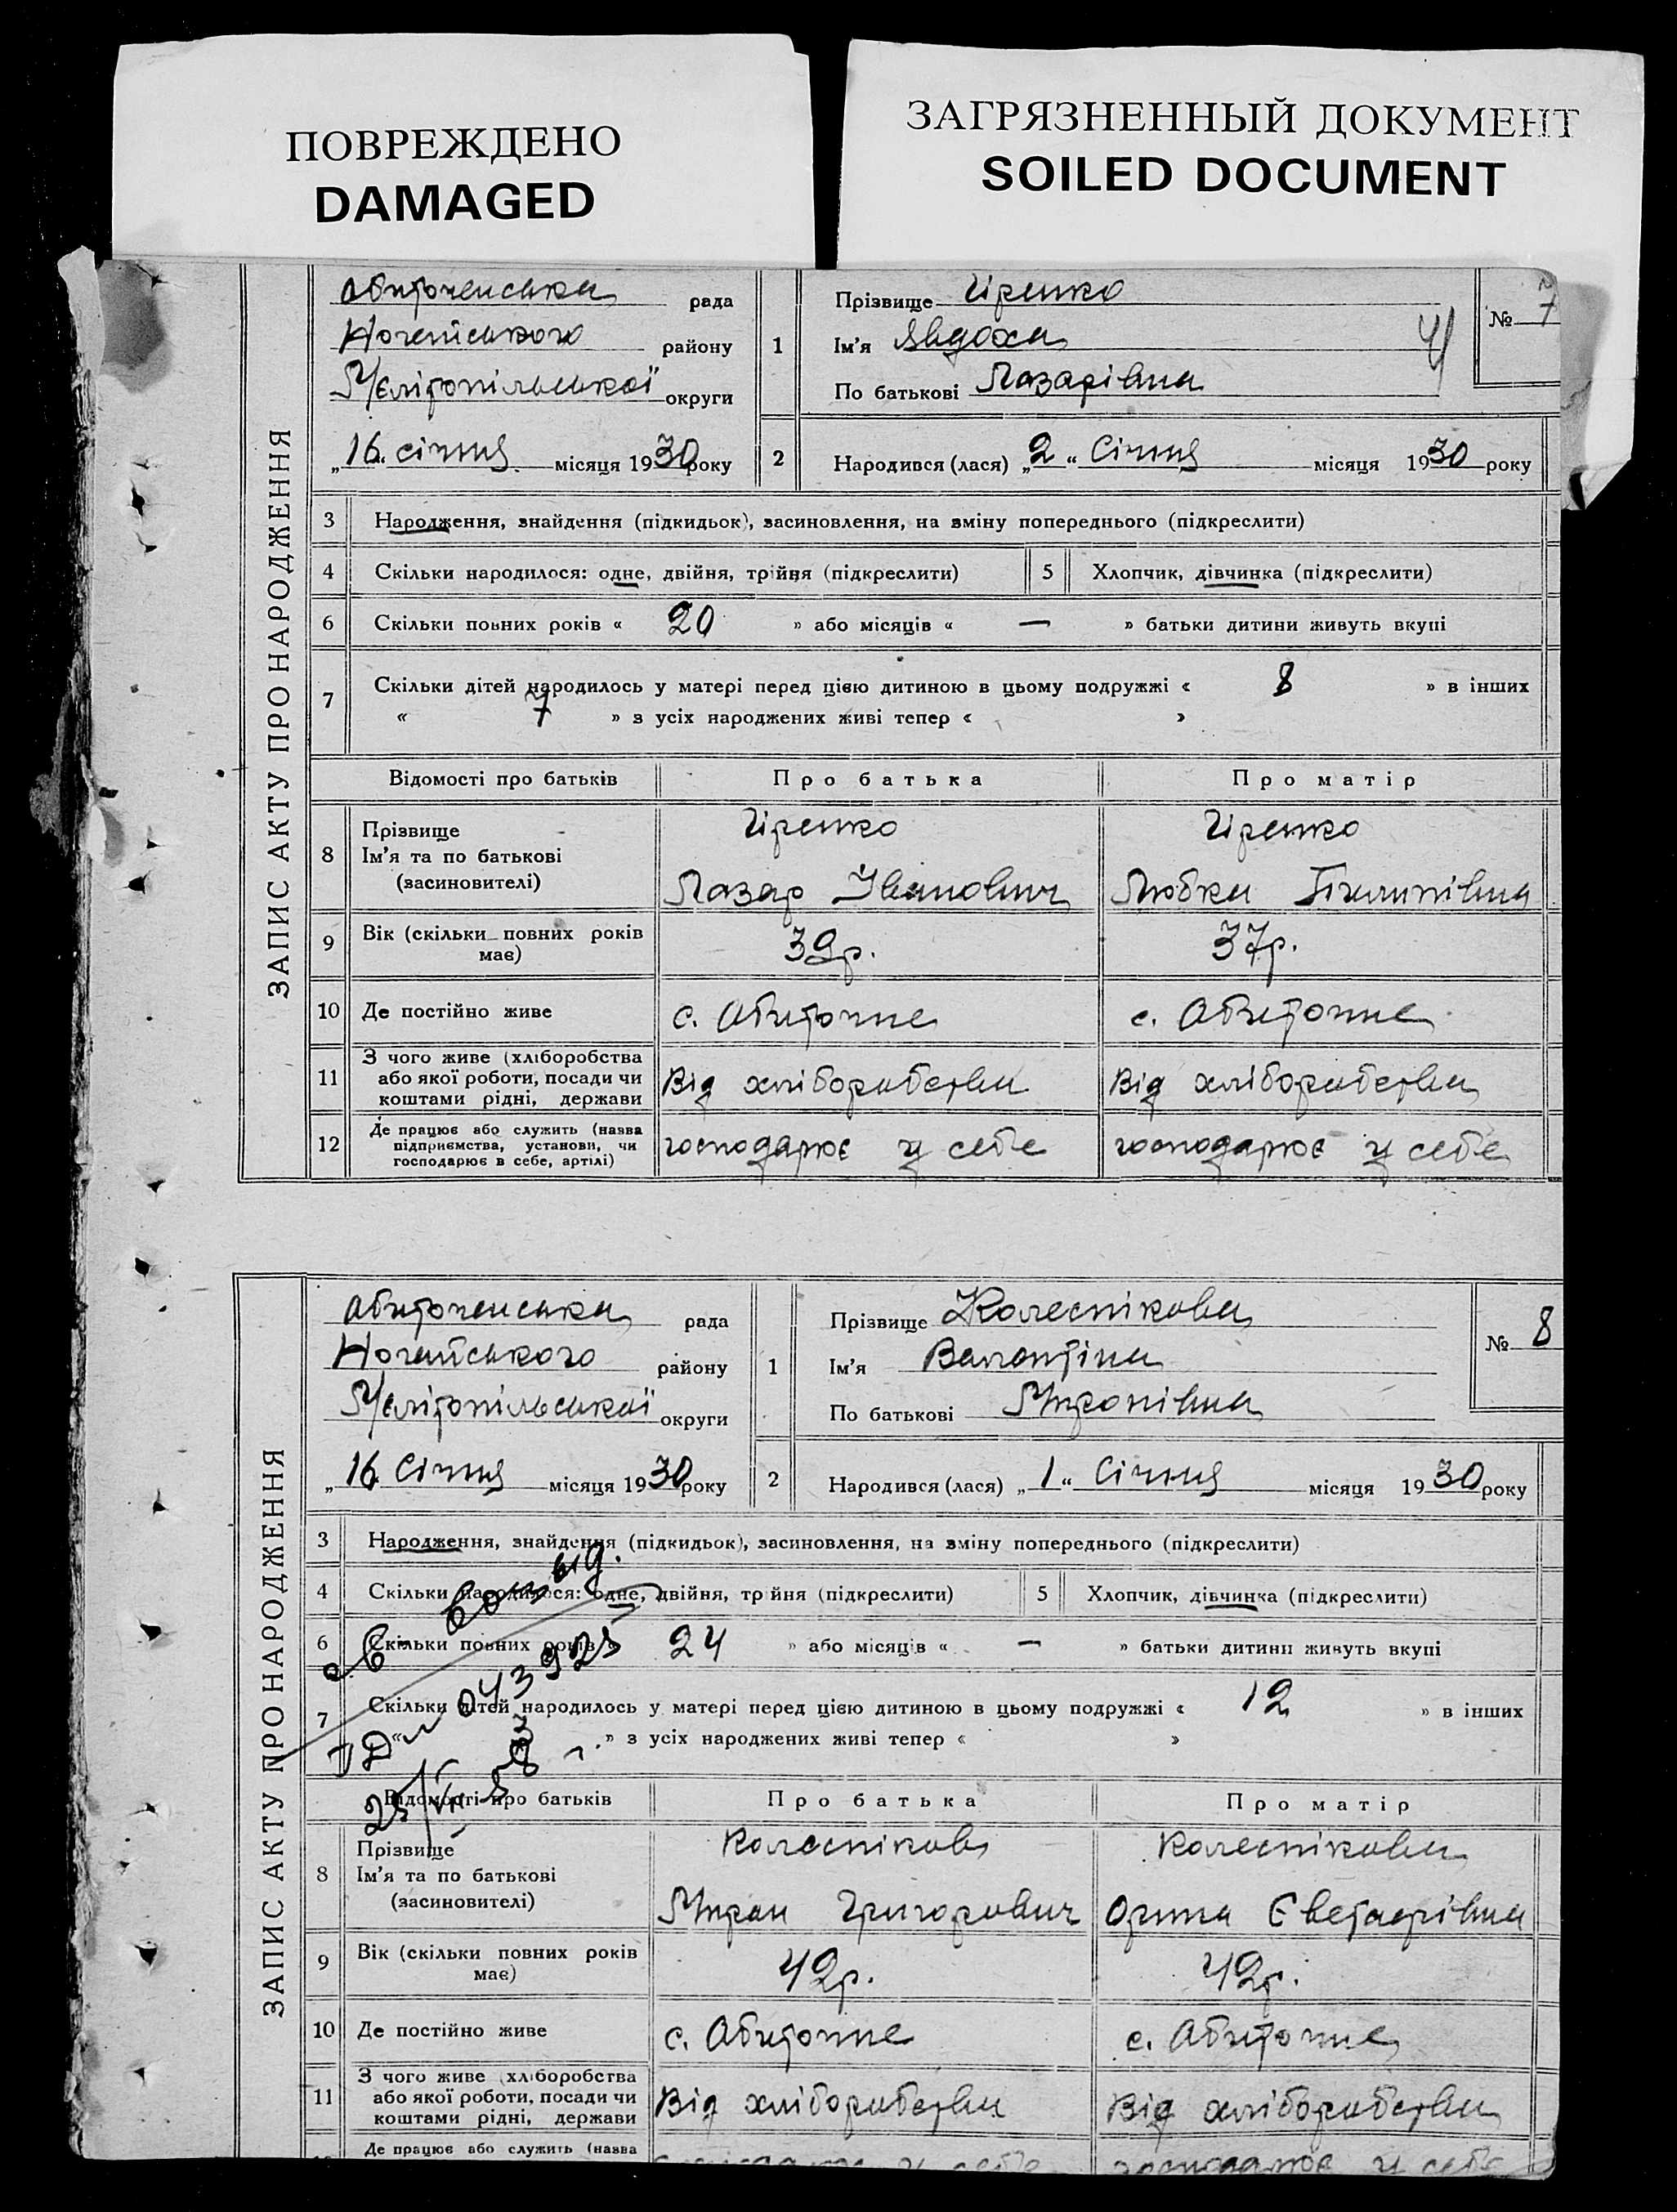 ПОВРЕЖДЕНО
DAMAGED
ЗАГРЯЗНЕННЫЙ ДОКУМЕНТ
SOILED DOCUMENT
ЗАПИС АКТУ ПРО НАРОДЖЕННЯ
Обиточенська рада
Ногайського району
Мелітопільської округи
„16“ січня місяця 1930 року
1 Прізвище Гіренко
Ім'я Явдоха
По батькові Лазарівна
№ 7
2 Народився (лася) „2“ Січня місяця 1930 року
3 Народження, знайдення (підкидьок), засиновлення, на зміну попереднього (підкреслити)
4 Скільки народилося: одне, двійня, трійня (підкреслити) 5 Хлопчик, дівчинка (підкреслити)
6 Скільки повних років « 20 » або місяців « — » батьки дитини живуть вкупі
7 Скільки дітей народилось у матері перед цією дитиною в цьому подружжі « 8 » в інших
« 7 » з усіх народжених живі тепер « »
Відомості про батьків Про батька Про матір
8 Прізвище Гіренко Гіренко
Ім'я та по батькові
(засиновителі) Лазар Іванович Любка Пилипівна
9 Вік (скільки повних років має) 39р. 37р.
10 Де постійно живе с. Обиточне с. Обиточне
11 З чого живе (хліборобства
або якої роботи, посади чи Від хліборобства Від хліборобства
коштами рідні, держави
12 Де працює або служить (назва
підприємства, установи, чи господарює у себе господарює у себе
господарює в себе, артілі)
ЗАПИС АКТУ ПРО НАРОДЖЕННЯ
Обиточенська рада
Ногайського району
Мелітопільської округи
„16 Січня місяця 1930 року
1 Прізвище Колеснікова
Ім'я Валентіна
По батькові Миронівна
№ 8
2 Народився (лася) „1“ Січня місяця 1930 року
3 Народження, знайдення (підкидьок), засиновлення, на зміну попереднього (підкреслити)
4 Скільки народилося: одне, двійня, трійня (підкреслити) 5 Хлопчик, дівчинка (підкреслити)
6 Скільки повних років 24 » або місяців « — » батьки дитини живуть вкупі
7 Скільки дітей народилось у матері перед цією дитиною в цьому подружжі « 12 » в інших
« 3 » з усіх народжених живі тепер « »
Відомості про батьків Про батька Про матір
8 Прізвище Колесніков Колеснікова
Ім'я та по батькові
(засиновителі) Мирон Григорович Орина Євстафівна
9 Вік (скільки повних років має) 42р. 42р.
10 Де постійно живе с. Обиточне с. Обиточне
11 З чого живе (хліборобства
або якої роботи, посади чи Від хліборобства Від хліборобства
коштами рідні, держави
Де працює або служить (назва
господарює у себе господарює у себе